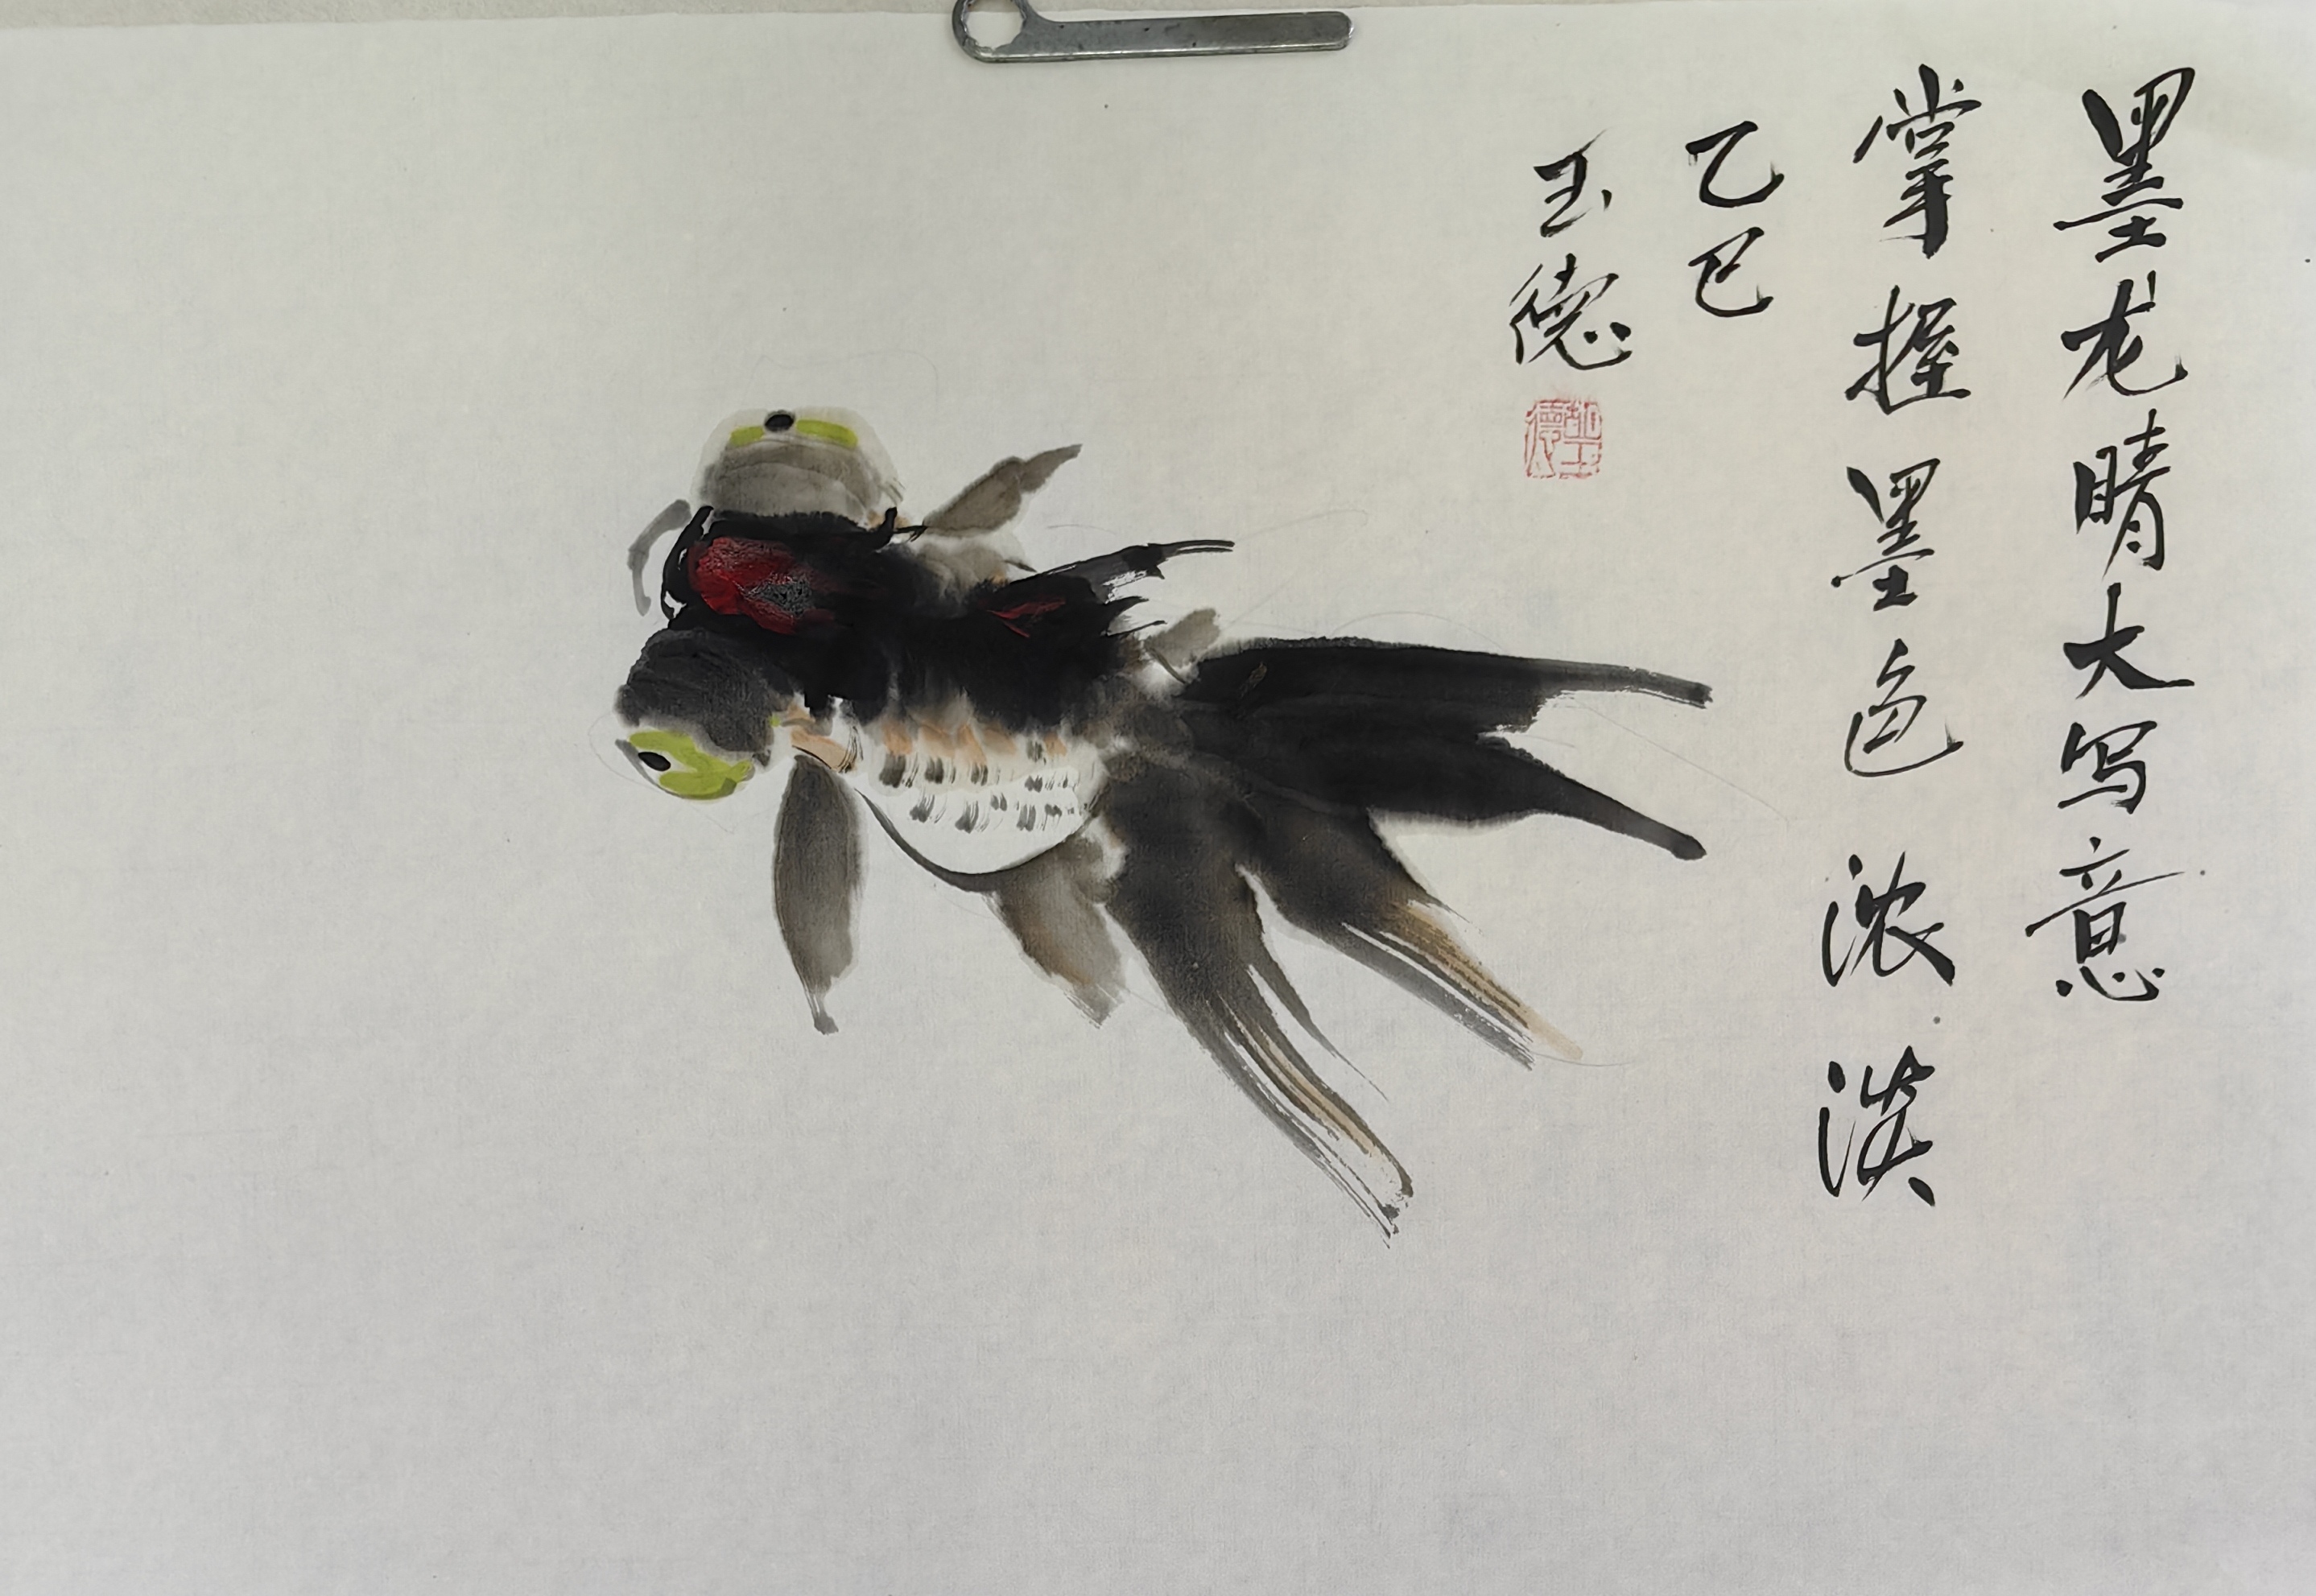 墨龙睛大写意
掌握墨色浓淡
乙巳
玉德